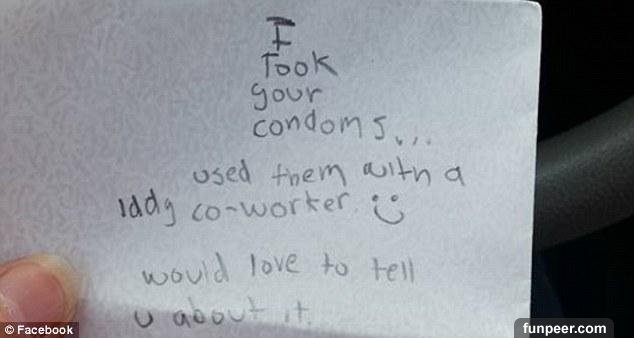 I
Took
your
condoms...
used them with a
lady co-worker. :)
would love to tell
u about it.
© Facebook
funpeer.com